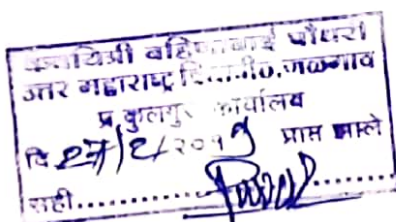 कवयित्री बहिणाबाई चौधरी
उत्तर महाराष्ट्र विद्यापीठ, जळगाव
प्र. कुलगुरु कार्यालय
दि 27/2/2019 प्राप्त झाले
सही